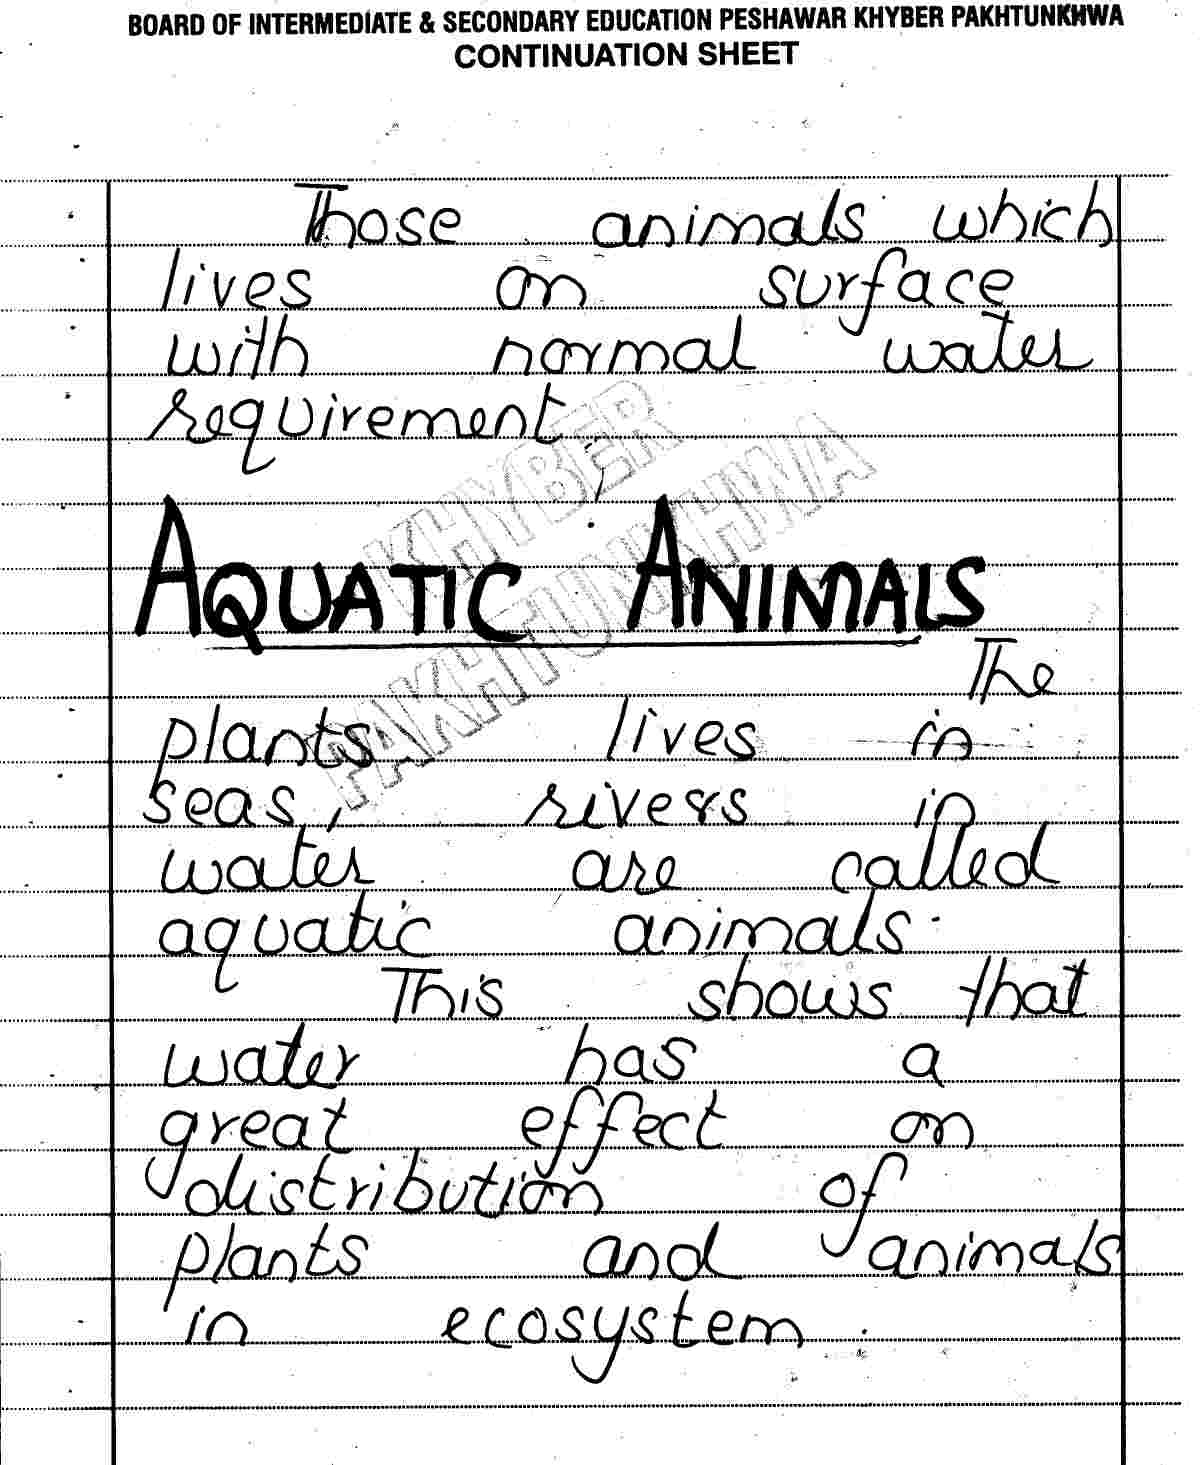 BOARD OF INTERMEDIATE & SECONDARY EDUCATION PESHAWAR KHYBER PAKHTUNKHWA
CONTINUATION SHEET
Those animals which
lives on surface
with normal water
requirement
KHYBER
PAKHTUNKHWA
AQUATIC ANIMALS
The
plants lives in
seas, rivers in
water are called
aquatic animals.
This shows that
water has a
great effect on
distribution of
plants and animals
in ecosystem.